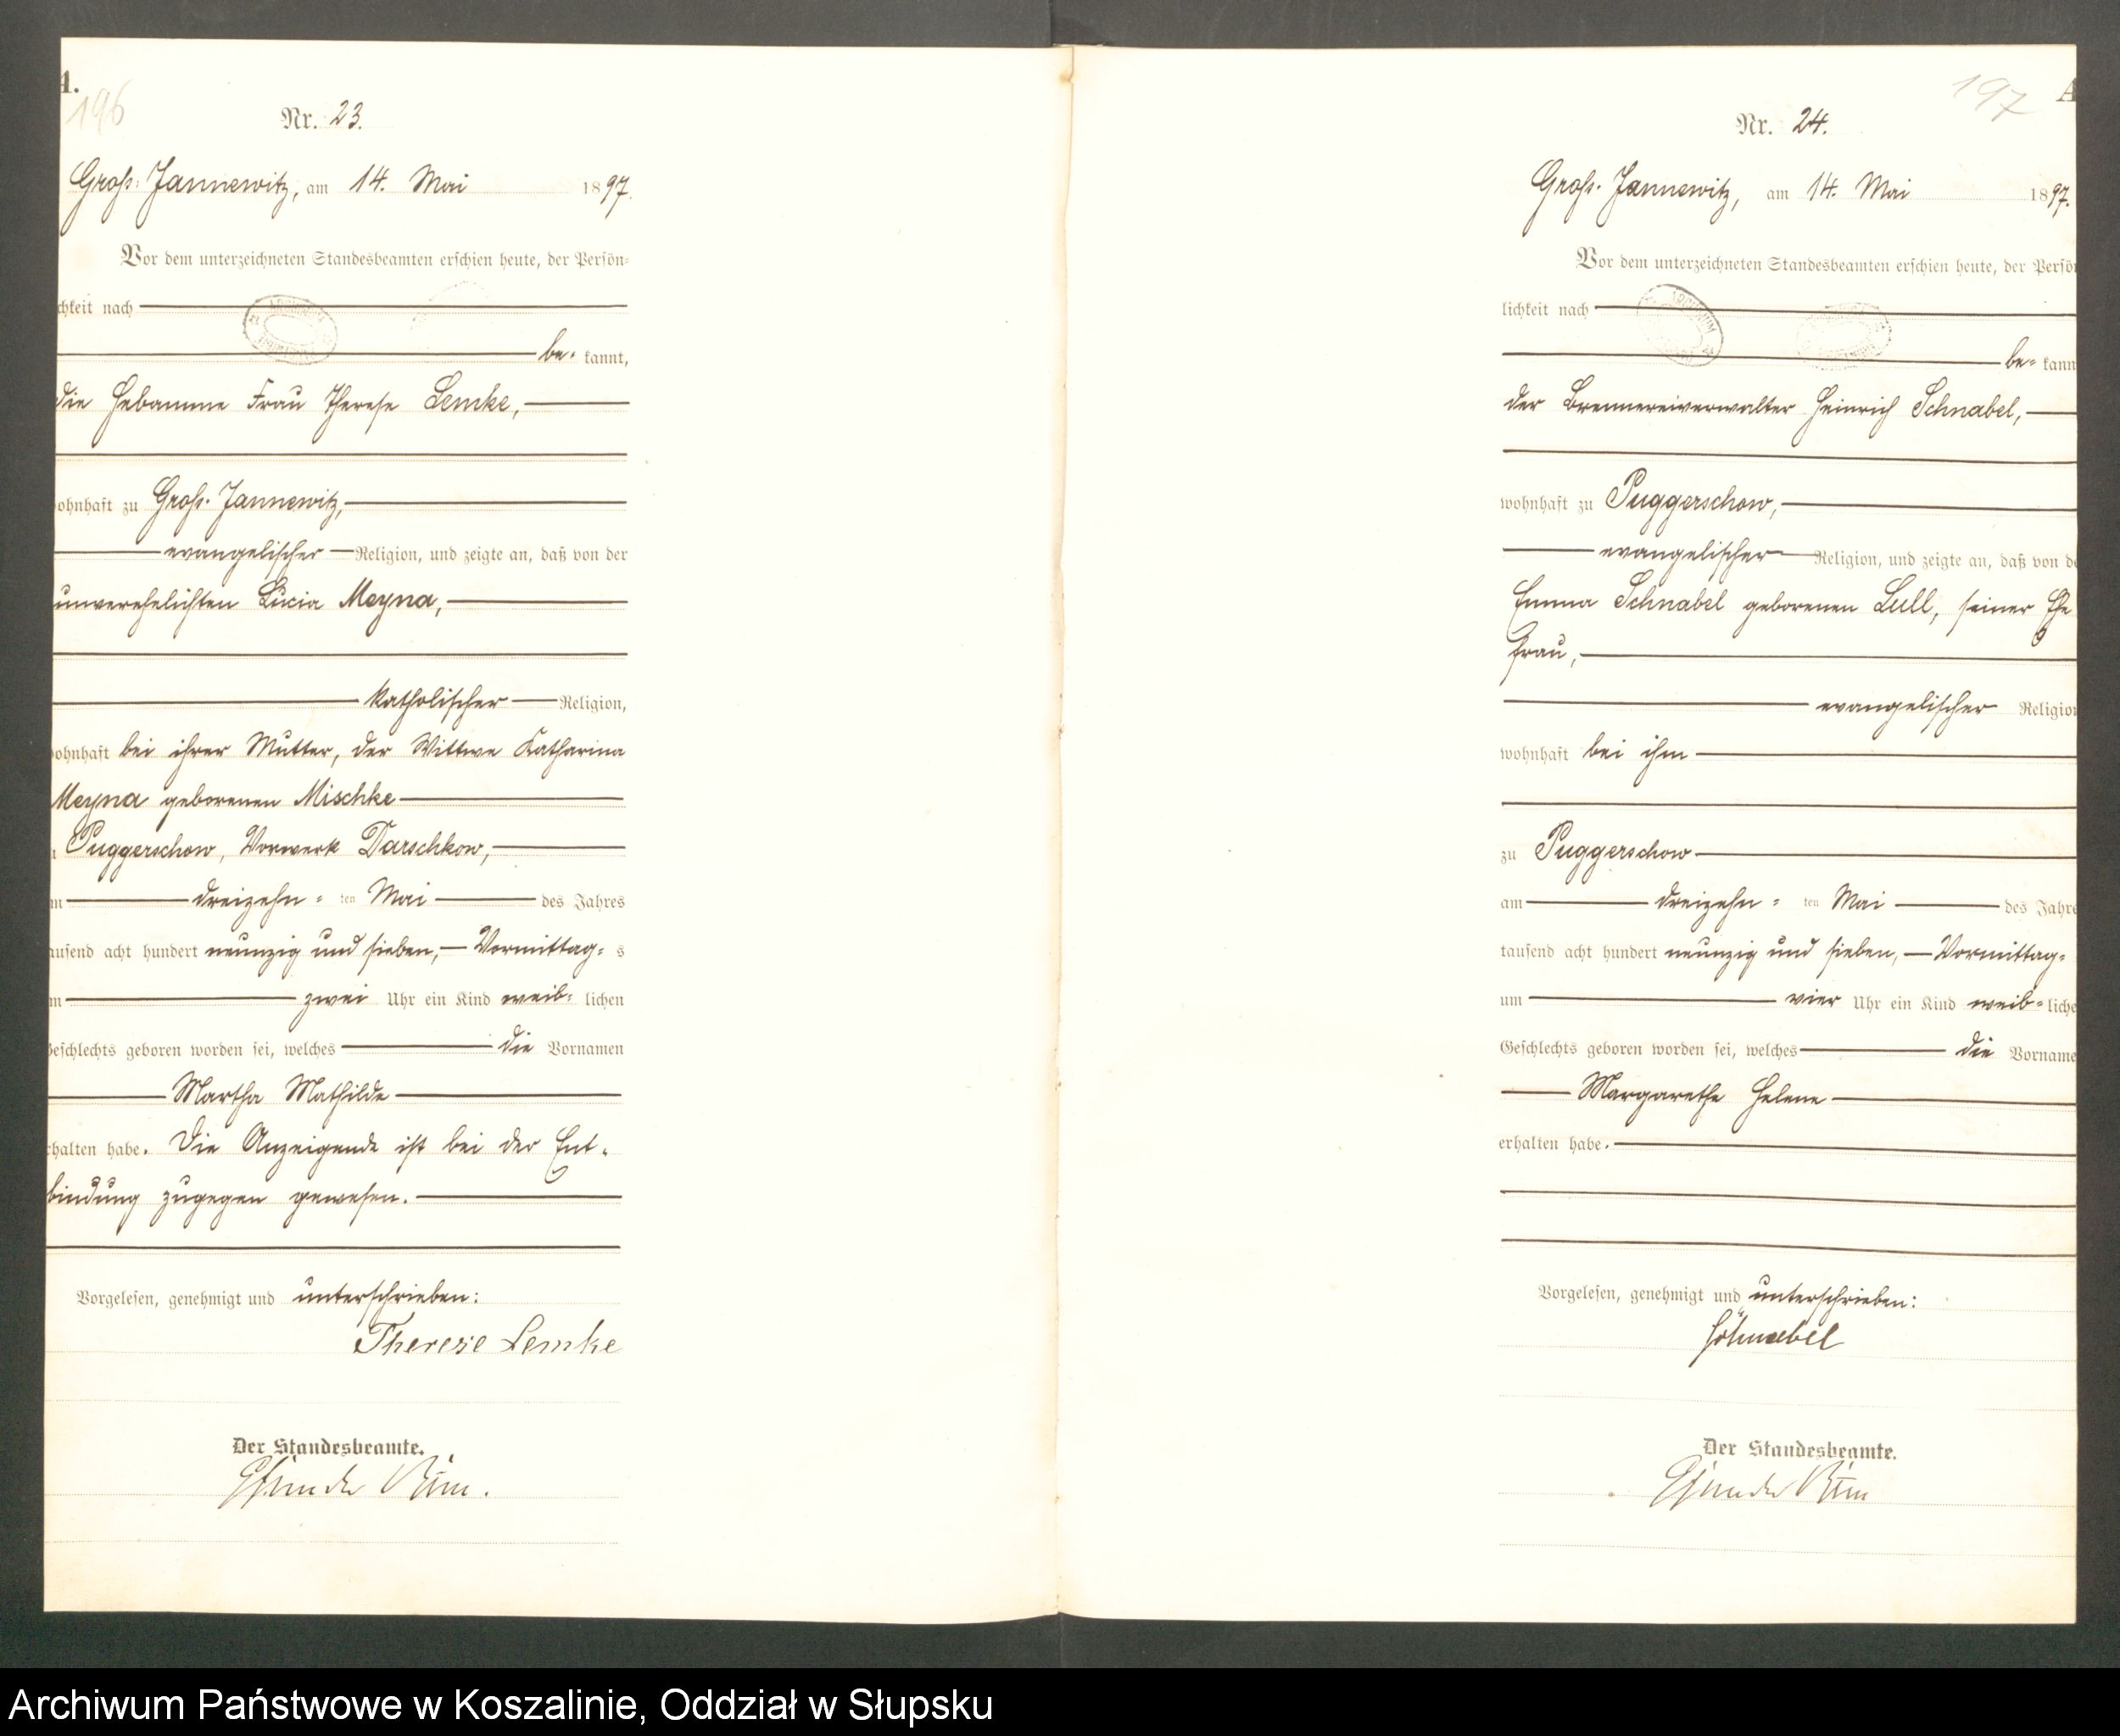 196
Nr. 23.
Groß-Jannewitz, am 14. Mai 1897.
Vor dem unterzeichneten Standesbeamten erschien heute, der Persön=
chkeit nach
be= kannt,
die Hebamme Frau Therese Lemke,
ohnhaft zu Groß-Jannewitz,
evangelischer Religion, und zeigte an, daß von der
unverehelichten Lucia Meyna,
katholischer Religion,
ohnhaft bei ihrer Mutter, der Wittwe Katharina
Meyna geborenen Mischke
Puggerschow, Vorwerk Darschkow,
dreizehn = ten Mai des Jahres
ausend acht hundert neunzig und sieben, Vormittag= s
zwei Uhr ein Kind weib= lichen
Geschlechts geboren worden sei, welches die Vornamen
Martha Mathilde
rhalten habe. Die Anzeigende ist bei der Ent-
bindung zugegen gewesen.
Vorgelesen, genehmigt und unterschrieben:
Therese Lemke
Der Standesbeamte.
197
A
Nr. 24.
Groß-Jannewitz, am 14. Mai 1897.
Vor dem unterzeichneten Standesbeamten erschien heute, der Persön
lichkeit nach
be= kann
der Brennereiverwalter Heinrich Schnabel,
wohnhaft zu Puggerschow,
evangelischer Religion, und zeigte an, daß von de
Emma Schnabel geborenen Lull, seiner Ehe
frau,
evangelischer Religion
wohnhaft bei ihm
zu Puggerschow
am dreizehn = ten Mai des Jahre
tausend acht hundert neunzig und sieben, Vormittag=
um vier Uhr ein Kind weib= liche
Geschlechts geboren worden sei, welches die Vorname
Margarethe Helene
erhalten habe.
Vorgelesen, genehmigt und unterschrieben:
Schnabel
Der Standesbeamte.
Archiwum Państwowe w Koszalinie, Oddział w Słupsku